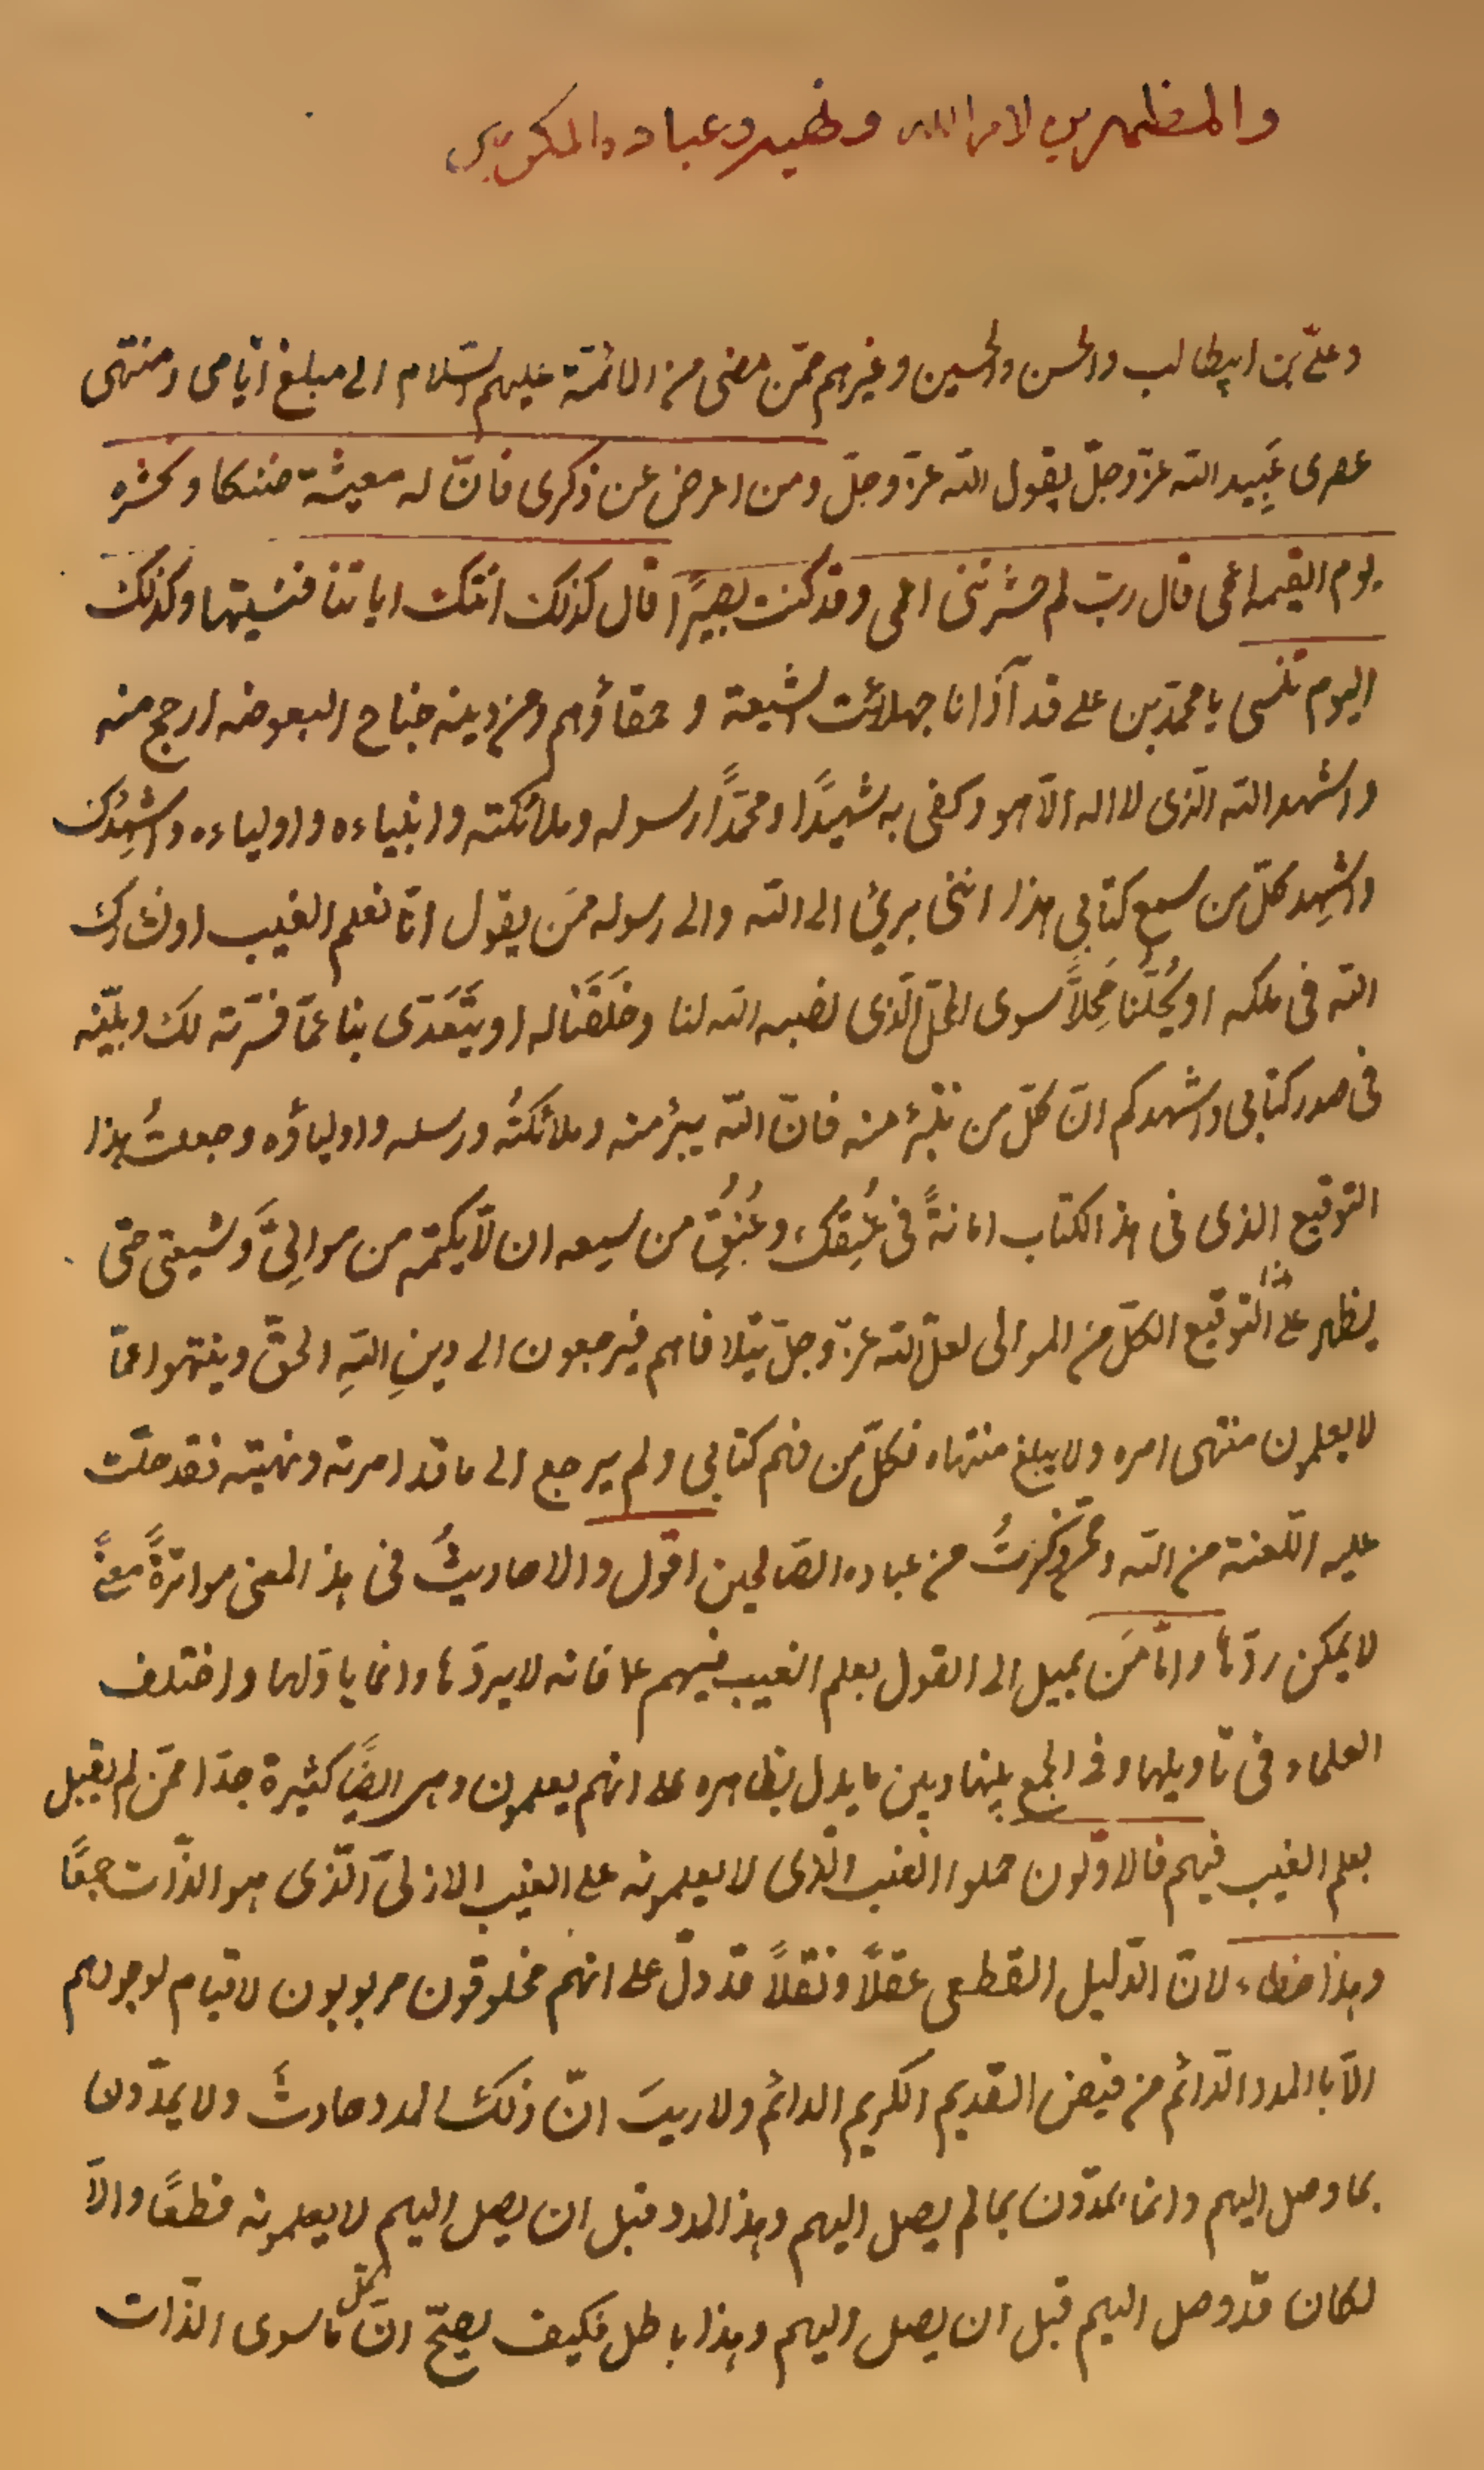 والمظهرين لامر الله ونهيه وعباده المكرمين
وعلىّ بن ابيطالب والحسن والحسين وغيرهم ممّن مضى من الائمّة عليهم السّلام الى مبلغ ايّامى ومنتهى
عصرى عَبِيد الله عزّ وجلّ يقول الله عزّ وجلّ ومن اعرض عن ذكرى فانّ له معيشة ضنكا ونحشره
يوم القيمة اعمى قال ربّ لم حشرتنى اعمى وقد كنت بصيرًا قال كذلك اتتك اياتنا فنسيتها وكذلك
اليوم تنسى يا محمّد بن على قد آذانا جهلائت الشيعة و حمقاؤهم ومن دينه جناح البعوضه ارجح منه
واشهد الله الّذى لا اله الّا هو وكفى به شهيدًا ومحمّدًا رسوله وملائكته وانبياءه واولياءه واشهِدُك
واشهِد كلّ من سمع كتابى هذا انّنى برئ الى الله والى رسوله ممّن يقول انّا نعلم الغيب او نشارك
الله فى ملكه او يُحلّنا مَحِلاًّ سوى المحلّ الّذى نصبه الله لنا وخَلَقَنا له او يتَعَدّى بنا عمّا فسّرته لك وبيّنته
فى صدر كتابى واشهدكم انّ كلّ من نتبرّئ منه فانّ الله يبرئ منه وملائكتُه ورسله واولياؤه وجعلتُ هذا
التوقيع الذى فى هذا الكتاب امانةً فى عُنِقك وعُنُقِ من سمعه ان لّا يكتمه من موالِىَّ وَشيعتى حتّى
يظهر على هذا التوقيع الكلّ من الموالى لعلّ الله عزّ وجلّ يتلافاهم فيرجعون الى دينِ اللهِ الحقّ وينتهوا عمّا
لا يعلمون منتهى امره ولا يبلغ منتهاه فكلّ من فهم كتابى ولم يرجع الى ما قد امرته ونهيته فقد حلّت
عليه اللّعنة من الله وممّن ذكرتُ من عباده الصّالحين اقول والاحاديثُ فى هذا المعنى متواترةً معنًى
لا يمكن ردّها وامّا مَن يميل الى القول بعلم الغيب فيهم ع فانه لا يردّها وانما ياوّلها واختلف
العلماء فى تاويلها وفى الجمع بينها وبين ما يدل بظاهره على انهم يعلمون وهى ايضًا كثيرة جدّا ممّن لم يقبل
بعلم الغيب فيهم فالاوّلون حملوا الغيب الّذى لا يعلمونه على الغيب الازلىّ الّذى هو الذّات جمعًا
وهذا خطاء لانّ الدّليل القطعى عقلاً ونقلاً قد دلّ على انهم مخلوقون مربوبون لا قيام لوجودهم
الّا بالمدد الدّائم من فيض القديم الكريم الدائم ولا ريبَ انّ ذلك المدد حادث ولا يمدّون
بما وصل اليهم وانما يمدّون بما لم يصل اليهم وهذا المدد قبل ان يصل اليهم لا يعلمونه قطعًا والّا
لكان قد وصل اليهم قبل ان يصل اليهم وهذا باطل فكيف يصحّ انّ كلّ ما سوى الذّات